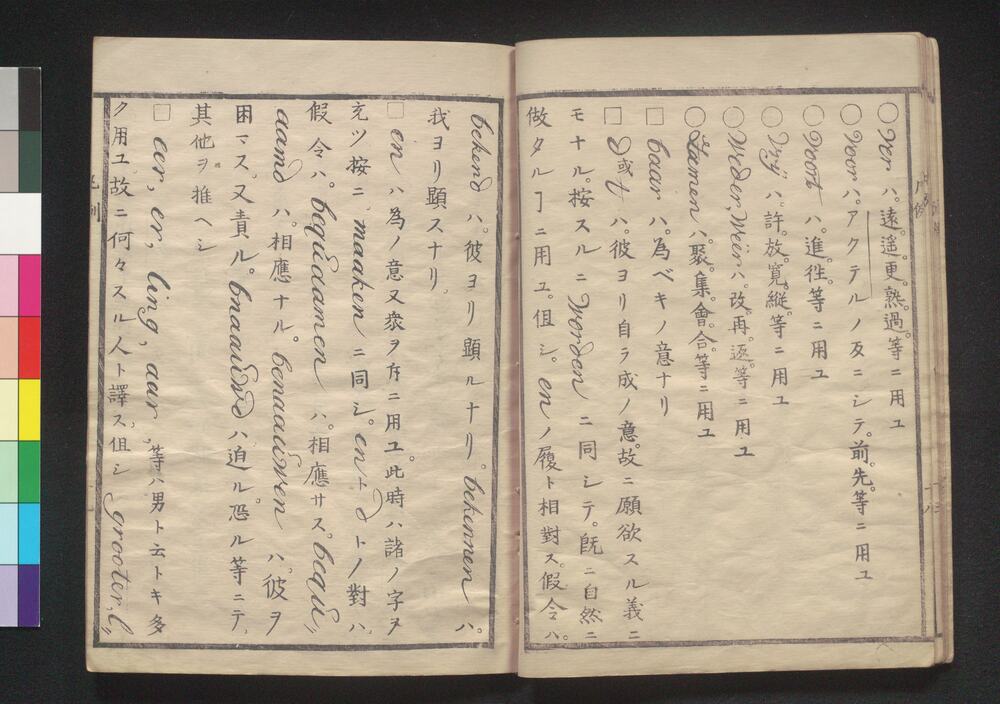 ○Ver ハ。遠。遥。更。熟。過。等ニ用ユ
○Voor ハ。アクテルノ反ニシテ。前。先。等ニ用ユ
○Voort ハ。進。徃。等ニ用ユ
○Vrij ハ。許。放。寛。縦。等ニ用ユ
○Weder, Weêr ハ。改。再。返。等ニ用ユ
○Zamen ハ。聚。集。會。合。等ニ用ユ
□baar ハ。為ベキノ意ナリ
□d 或 t ハ。彼ヨリ自ラ成ノ意。故ニ願欲スル義ニ
モナル。按スルニ Worden ニ同シテ。既ニ自然ニ
做タルヿニ用ユ。伹シ。en ノ履ト相對ス。假令ハ。
bekend ハ。彼ヨリ顯ルナリ。bekennen ハ。
我ヨリ顯スナリ。
□en ハ為ノ意又衆ヲ斥ニ用ユ。此時ハ諸ノ字ヲ
充ツ按ニ maaken ニ同シ。en ト d トノ對ハ。
假令ハ。bequaamen ハ。相應サス。bequ〃
aamd ハ。相應ナル。benaauwen ハ。彼ヲ
困マス。又責ル。bnaauwd ハ迫ル。恐ル等ニテ。
其他ヲ推ヘシ
□aer, er, ling, aar, 等ハ男ト云トキ多
ク用ユ。故ニ何々スル人ト譯ス。伹シ grooter, l〃